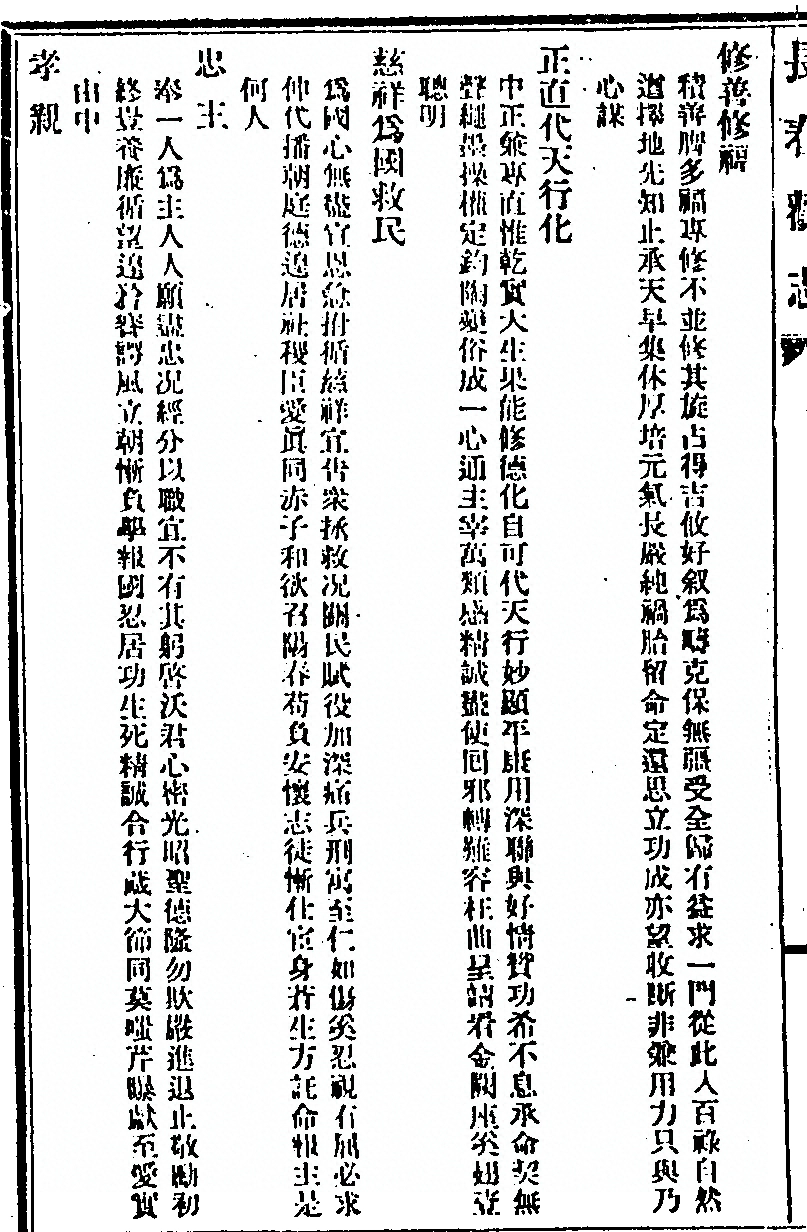 修善修福
積善膺多福專修不並修其旋占得吉攸好叙為疇克保無疆受全歸有益求一門從此入百祿自然
遒擇地先知止承天早集休厚培元氣長嚴純禍胎留命定還思立功成亦望收斷非兼用力只與乃
心謀
正直代天行化
中正兼專直惟乾實大生果能修德化自可代天行妙顯平康用深聯與好情贊功希不息承命契無
聲繩墨操權定鈞陶變俗成一心通主宰萬類感精誠盡使回邪轉難容枉曲呈請看金闕座奚翅壹
聰明
慈祥爲國救民
爲國心無盡宣恩念拊循慈祥宜告衆拯救况關民賦役加深痛兵刑寓至仁如傷奚忍視有屈必求
伸代播朝庭德遑居社稷臣愛眞同赤子和欲召陽春苟負安懷志徒慚仕宦身蒼生方託命報主是
何人
忠主
奉一人爲主人人願盡忠况經分以職宜不有其躬啓沃君心密光昭聖德隆勿欺嚴進退止敬勵初
終豈養廉循望遑矜謇諤風立朝慚負學報國忍居功生死精誠合行藏大節同莫嗤芹曝獻至愛實
由中
孝親
長春觀志